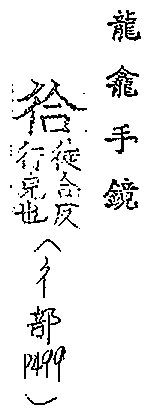 龍龕手鏡
彾徒合反
行皃也
(彳部
P499)